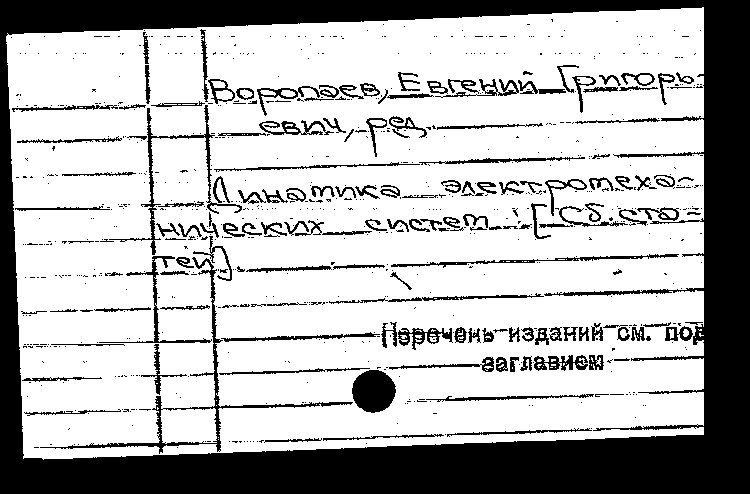 Воропаев, Евгений Григорь-
евич, ред.
Динамика электромеха-
нических систем : [Сб. ста-
тей].
Перечень изданий см. под
заглавием